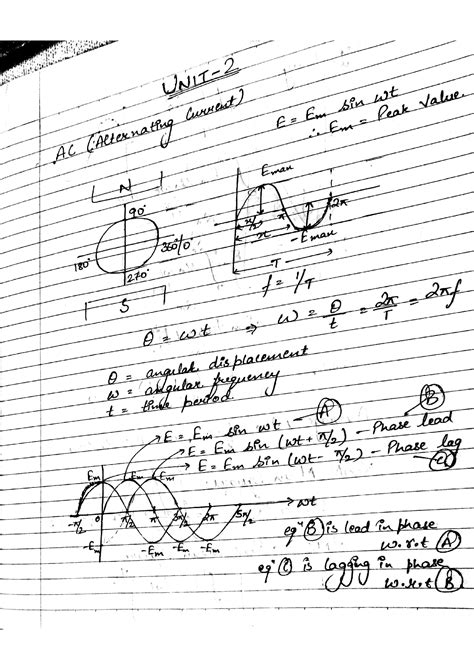 UNIT-2
AC (Alternating Current)
E = Em sin wt
∴ Em = Peak Value
N
90°
180°
360°/0°
270°
S
Emax
π/2
π
2π
-Emax
T
f = 1/T
θ = wt ⇒ w = θ/t = 2π/T = 2πf
θ = angular displacement
w = angular frequency
t = time period
E = Em sin wt - (A)
(B)
E = Em sin (wt + π/2) - Phase lead
E = Em sin (wt - π/2) - Phase lag
(C)
Em Em Em
-π/2 0 π/2 π 3π/2 2π 5π/2
wt
-Em -Em -Em -Em
eqn (B) is lead in phase
w.r.t (A)
eqn (C) is lagging in phase
w.r.t (B)